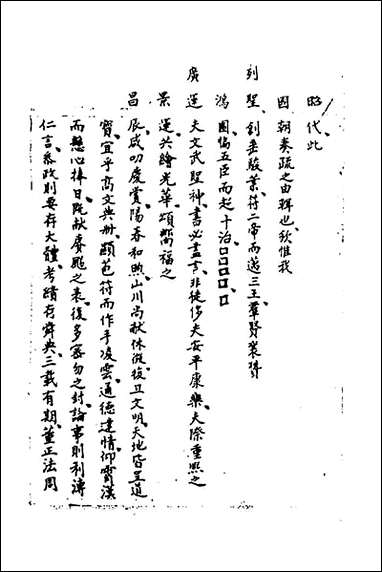 昭代此
國朝奏疏之由輯也欽惟我
列聖創垂駿業符二帝而邁三王羣賢襄贊
鴻圖恊五臣而起十治□□□□□
廣運夫文武聖神書必盡言非徒侈夫安平康樂夫際重熙之
景運共繪光華頌嚮福之
昌辰咸叨慶賞陽春和煦山川尚獻休徵復旦文明天地皆呈道
寶宜乎高文典冊顯苞符而作手凌雲通德達情仰霄漢
而懸心捧日既献賡颺之表復多密勿之封論事則利溥
仁言恭政則要存大體考績存舜典三載有期董正法周